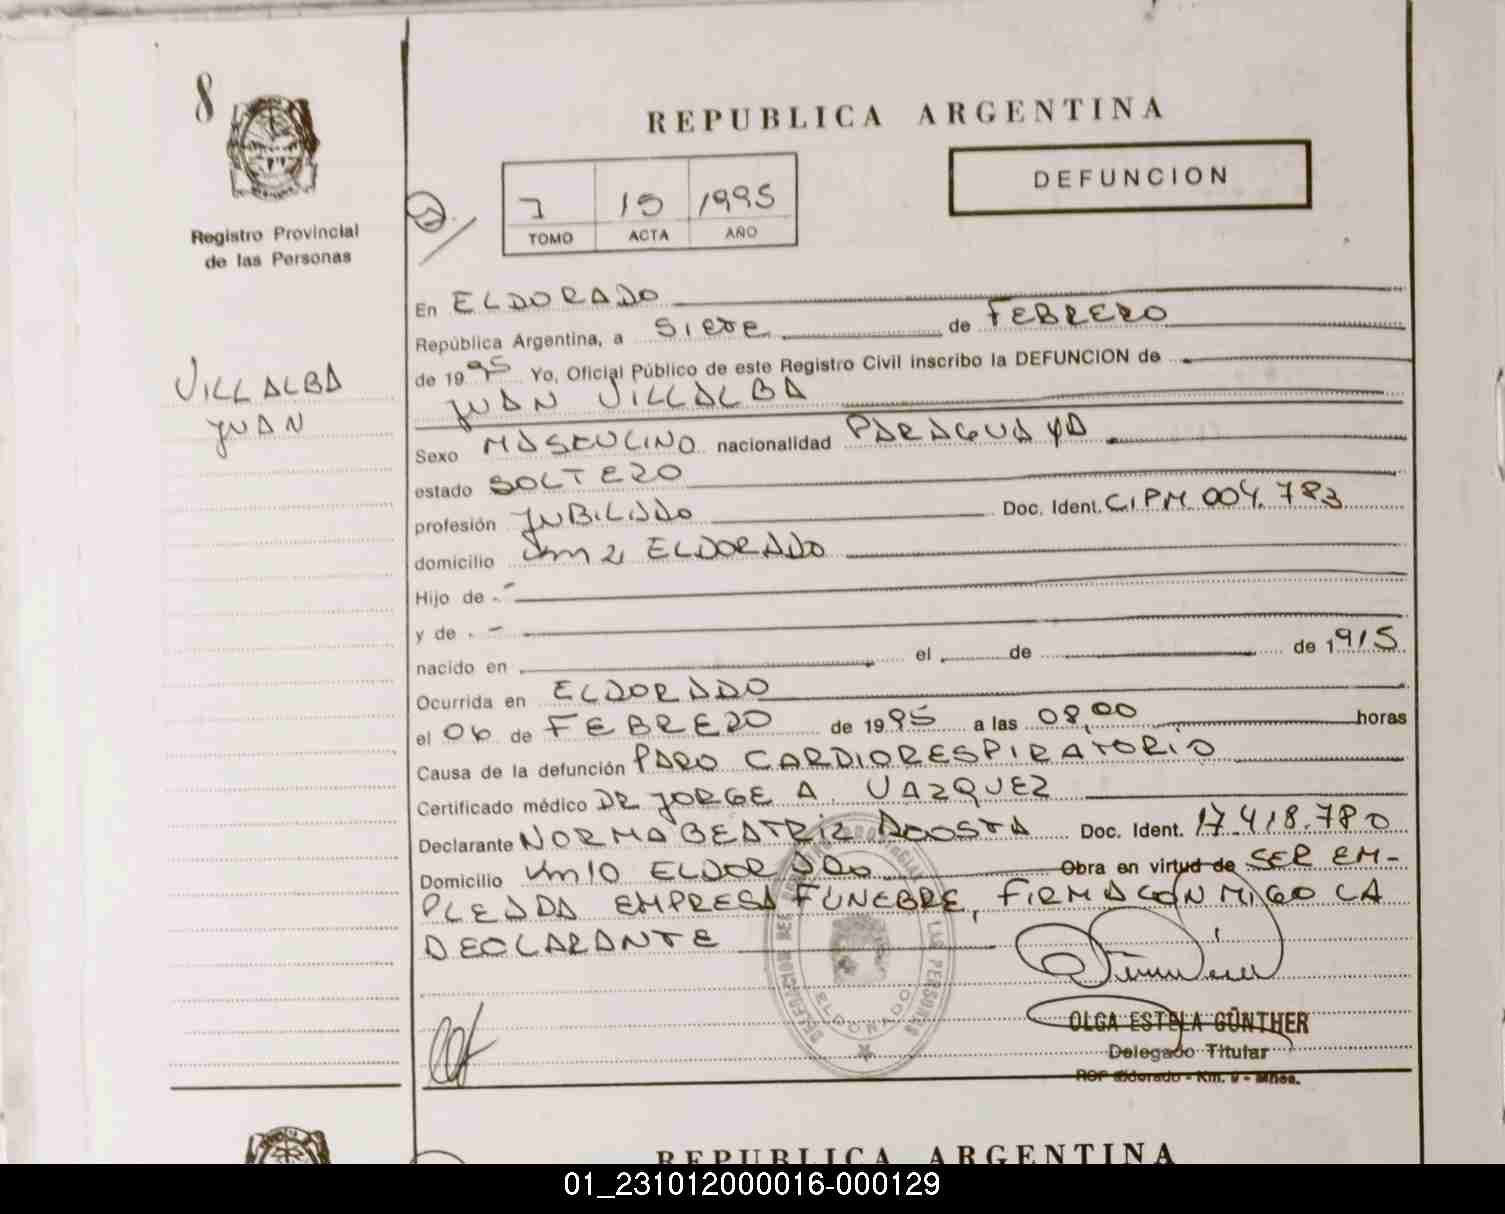 8
REPUBLICA ARGENTINA
DEFUNCION
Registro Provincial
de las Personas
15 1995
TOMO ACTA AÑO
En ELDORADO
República Argentina, a SIETE de FEBRERO
de 1995 Yo, Oficial Público de este Registro Civil inscribo la DEFUNCION de
VILLALBA
JUAN
JUAN VILLALBA
Sexo MASCULINO nacionalidad PARAGUAYA
estado SOLTERO
profesión JUBILADO Doc. Ident. C.I.P.M. 004.783
domicilio Km 2 ELDORADO
Hijo de -
y de -
nacido en el de de 1915
Ocurrida en ELDORADO
el 06 de FEBRERO de 1995 a las 08,00 horas
Causa de la defunción PARO CARDIORESPIRATORIO
Certificado médico DR JORGE A. VAZQUEZ
Declarante NORMA BEATRIZ ACOSTA Doc. Ident. 17.418.780
Domicilio Km 10 ELDORADO Obra en virtud de SER EM-
PLEADA EMPRESA FUNEBRE, FIRMA CONMIGO LA
DECLARANTE
DELEGACION DEL REGISTRO PROVINCIAL DE LAS PERSONAS
ELDORADO
OLGA ESTELA GÜNTHER
Delegado Titular
RCP Eldorado - Km. 9 - Mnes.
REPUBLICA ARGENTINA
01_231012000016-000129